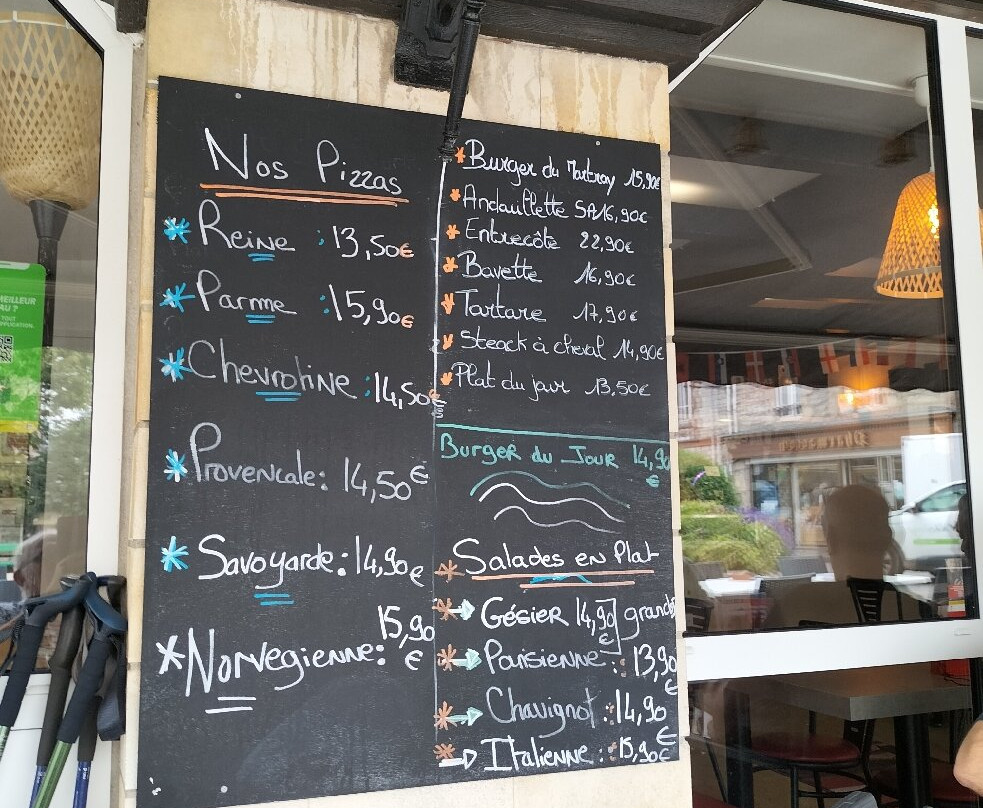 Nos Pizzas
* Reine : 13,50€
* Parme : 15,90€
* Chevrotine : 14,50€
* Provencale : 14,50€
* Savoyarde : 14,90€
* Norvegienne : 15,90€
* Burger du Martray 15,90€
* Andouillette 5A 16,90€
* Entrecôte 22,90€
* Bavette 16,90€
* Tartare 17,90€
* Steack à cheval 14,90€
* Plat du jour 13,50€
Burger du Jour 14,90€
* Salades en Plat
* → Gésier 14,90€ grande
* → Parisienne : 13,90€
* → Chavignol : 14,90€
* → Italienne : 15,90€